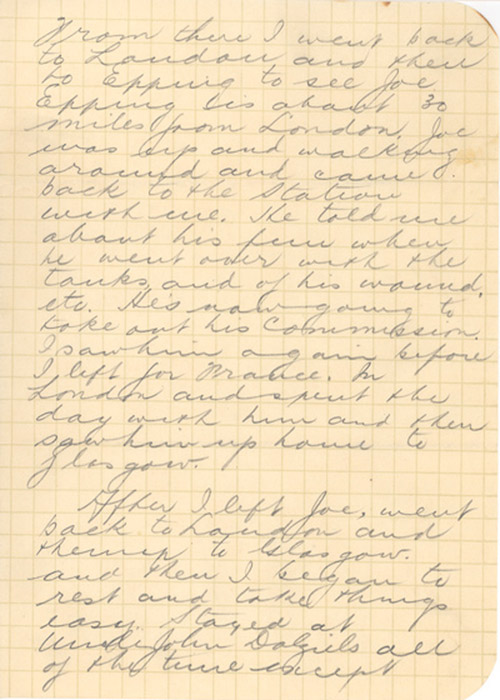 From there I went back
to London and then
to Epping to see Joe
Epping is about 30
miles from London. Joe
was up and walking
around and came
back to the Station
with me. He told me
about his fun when
he went over with the
tanks, and of his wound,
etc. He's now going to
take out his Commission.
I saw him again before
I left for France. In
London and spent the
day with him and then
saw him up home to
Glasgow.
After I left Joe, went
back to London and
then up to Glasgow.
and then I began to
rest and take things
easy. Stayed at
Uncle John Dalziels all
of the time except